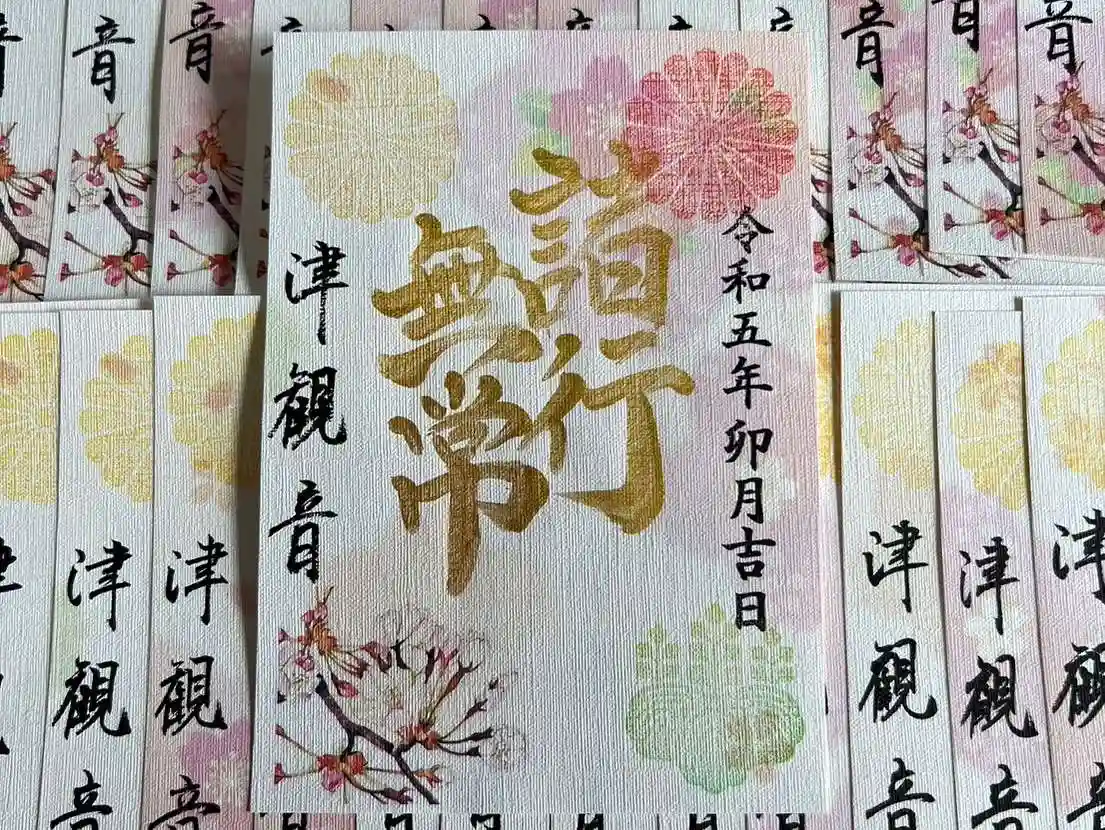 令和五年卯月吉日
諸行
無常
津観音
音
音
音
音
音
津観音
津観音
津観音
津観音
津観音